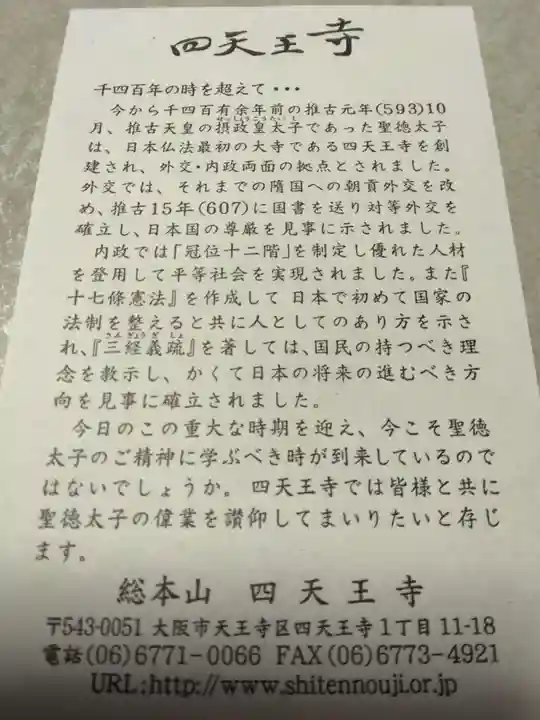 四天王寺
千四百年の時を超えて・・・
今から千四百有余年前の推古元年(593)10
せっしょうこうたいし
月、推古天皇の摂政皇太子であった聖徳太子
は、日本仏法最初の大寺である四天王寺を創
建され、外交・内政両面の拠点とされました。
外交では、それまでの隋国への朝貢外交を改
め、推古15年(607)に国書を送り対等外交を
確立し、日本国の尊厳を見事に示されました。
内政では「冠位十二階」を制定し優れた人材
を登用して平等社会を実現されました。また『
十七條憲法』を作成して 日本で初めて国家の
法制を整えると共に人としてのあり方を示さ
さんぎょうぎしょ
れ、『三経義疏』を著しては、国民の持つべき理
念を教示し、かくて日本の将来の進むべき方
向を見事に確立されました。
今日のこの重大な時期を迎え、今こそ聖徳
太子のご精神に学ぶべき時が到来しているので
はないでしょうか。四天王寺では皆様と共に
聖徳太子の偉業を讃仰してまいりたいと存じ
ます。
総本山 四天王寺
〒543-0051 大阪市天王寺区四天王寺1丁目11-18
電話(06)6771-0066 FAX(06)6773-4921
URL:http://www.shitennouji.or.jp